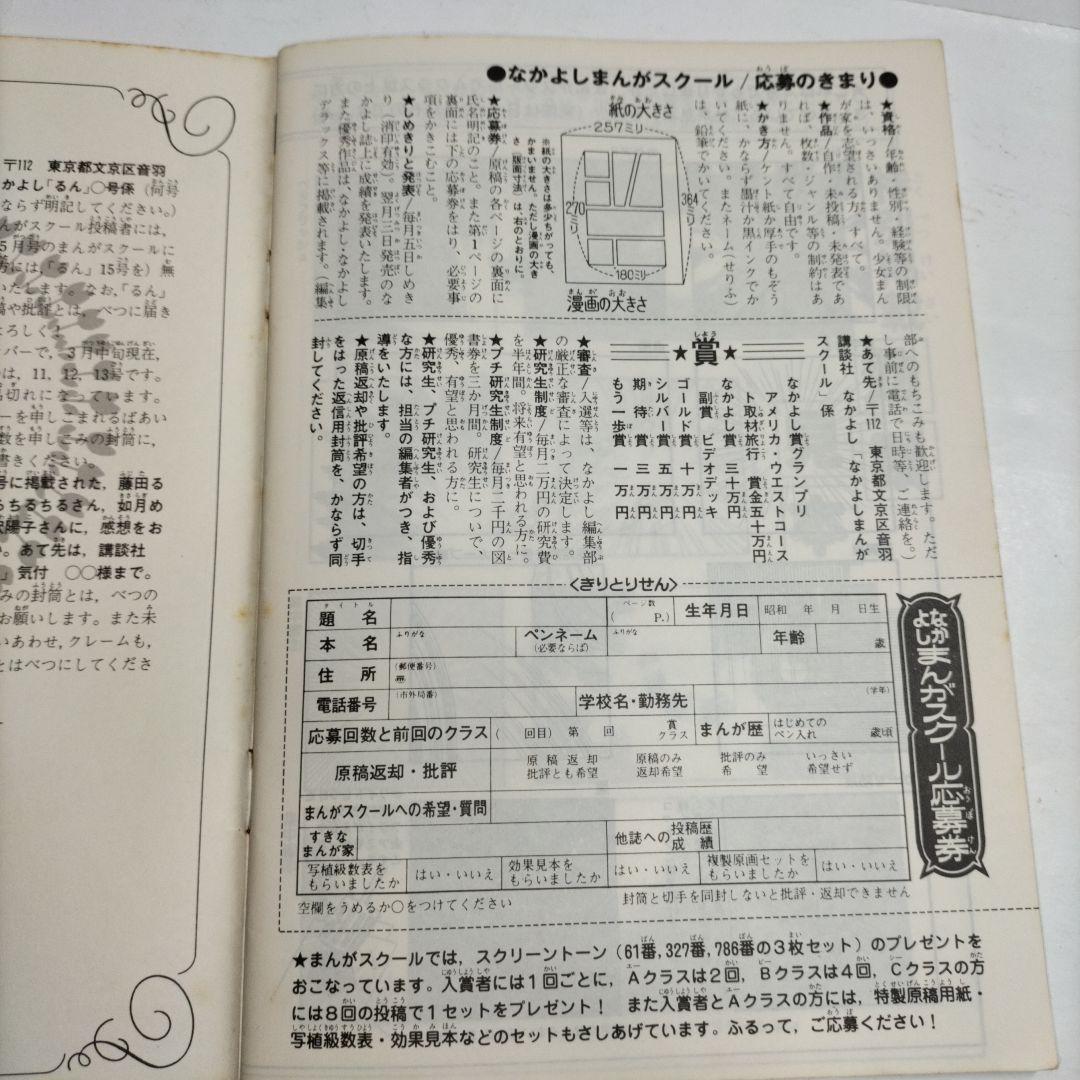 〒112 東京都文京区音羽
かよし「るん」〇号係(何号
ならず明記してください。)
んがスクール投稿者には,
5月号のまんがスクールに
方には,「るん」15号を)無
いたします。なお,「るん」
稿や批評とは、べつに届き
よろしく!
バーで, 3月中旬現在,
は, 11, 12, 13号です。
切れになっています。
ーを申しこまれるばあい
数を申しこみの封筒に,
書きください。
号に掲載された, 藤田る
らちるちるさん, 如月め
陽子さんに, 感想をお
い。あて先は, 講談社
」気付 〇〇様まで。
みの封筒とは, べつの
お願いします。また未
いあわせ, クレームも,
とはべつにしてくださ
●なかよしまんがスクール/応募のきまり●
★資格/年齢・性別・経験等の制限
は、いっさいありません。少女まん
が家を志望される方、すべて。
★作品/自作・未投稿・未発表であ
れば、枚数・ジャンル等の制約はあ
りません。すべて自由です。
★かき方/ケント紙か厚手のもぞう
紙に、かならず墨汁か黒インクでか
いてください。またネーム(せりふ)
は、鉛筆でかいてください。
紙の大きさ
257ミリ
364ミリ
270ミリ
180ミリ
漫画の大きさ
※紙の大きさは多少ちがっても、
かまいません。ただし漫画の大き
さ(版面寸法)は、右のとおりに。
★応募券/原稿の各ページの裏面に
氏名明記のこと。また第1ページの
裏面には下の応募券をはり、必要事
項をかきこむこと。
★しめきりと発表/毎月五日しめき
り(消印有効)。翌月三日発売のな
かよし誌上に成績を発表いたします。
また優秀作品は、なかよし・なかよし
デラックス等に掲載されます。(編集
部へのもちこみも歓迎します。ただ
し事前に電話で日時等、ご連絡を。)
★あて先/〒112 東京都文京区音羽
講談社 なかよし「なかよしまんが
スクール」係
★賞★
なかよし賞グランプリ
アメリカ・ウエストコース
ト取材旅行 賞金五十万円
なかよし賞 三十万円
副賞 ビデオデッキ
ゴールド賞 十万円
シルバー賞 五万円
期待賞 三万円
もう一歩賞 一万円
★審査/入選等は、なかよし編集部
の厳正な審査によって決定します。
★研究生制度/毎月二万円の研究費
を半年間。将来有望と思われる方に。
★プチ研究生制度/毎月二千円の図
書券を三か月間。研究生について、
優秀、有望と思われる方に。
★研究生、プチ研究生、および優秀
な方には、担当の編集者がつき、指
導をいたします。
★原稿返却や批評希望の方は、切手
をはった返信用封筒を、かならず同
封してください。
〈きりとりせん〉
なかよしまんがスクール応募券
題名 タイトル ページ数 ( P.) 生年月日 昭和 年 月 日生
本名 ふりがな ペンネーム (必要ならば) ふりがな 年齢 歳
住所 (郵便番号) 〒
電話番号 (市外局番) 学校名・勤務先 (学年)
応募回数と前回のクラス ( 回目) 第 回 賞 クラス まんが歴 はじめての ペン入れ 歳頃
原稿返却・批評 原稿返却 批評とも希望 原稿のみ 返却希望 批評のみ 希望 いっさい 希望せず
まんがスクールへの希望・質問
すきな まんが家 他誌への投稿歴 成績
写植級数表を もらいましたか はい・いいえ 効果見本を もらいましたか はい・いいえ 複製原画セットを もらいましたか はい・いいえ
空欄をうめるか〇をつけてください 封筒と切手を同封しないと批評・返却できません
★まんがスクールでは, スクリーントーン(61番,327番,786番の3枚セット)のプレゼントを
おこなっています。入賞者には1回ごとに, Aクラスは2回, Bクラスは4回, Cクラスの方
には8回の投稿で1セットをプレゼント! また入賞者とAクラスの方には, 特製原稿用紙・
写植級数表・効果見本などのセットもさしあげています。ふるって, ご応募ください!